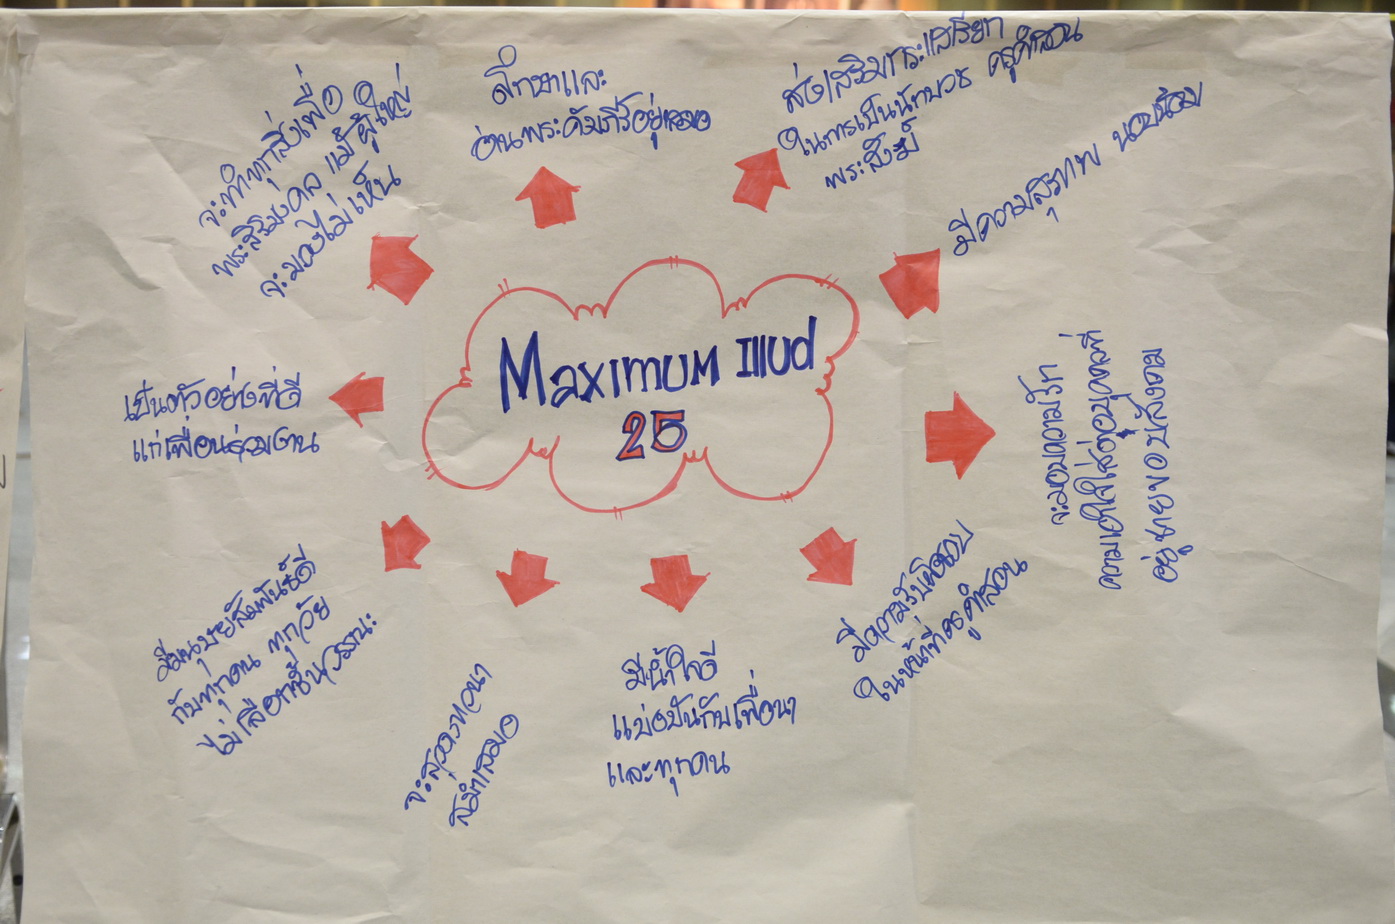 Maximum Illud
25
ศึกษาและ
อ่านพระคัมภีร์อยู่เสมอ
ส่งเสริมกระแสเรียก
ในการเป็นนักบวช ครูคำสอน
พระสงฆ์
มีความสุภาพ นอบน้อม
จะมอบความรัก
ความเอาใจใส่ต่อบุคคลที่
อยู่ชายขอบสังคม
มีความรับผิดชอบ
ในหน้าที่ครูคำสอน
มีน้ำใจดี
แบ่งปันกับเพื่อนๆ
และทุกคน
จะสวดภาวนา
สม่ำเสมอ
มีมนุษย์สัมพันธ์ดี
กับทุกคน ทุกวัย
ไม่เลือกชั้นวรรณะ
เป็นตัวอย่างที่ดี
แก่เพื่อนร่วมงาน
จะทำทุกสิ่งเพื่อ
พระสิริมงคล แม้ผู้ใหญ่
จะมองไม่เห็น